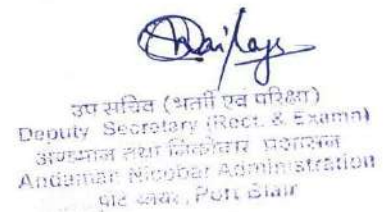 उप सचिव (भर्ती एवं परिक्षा)
Deputy Secretary (Rect. & Examn)
अण्डमान तथा निकोबार प्रशासन
Andaman Nicobar Administration
Port Blair